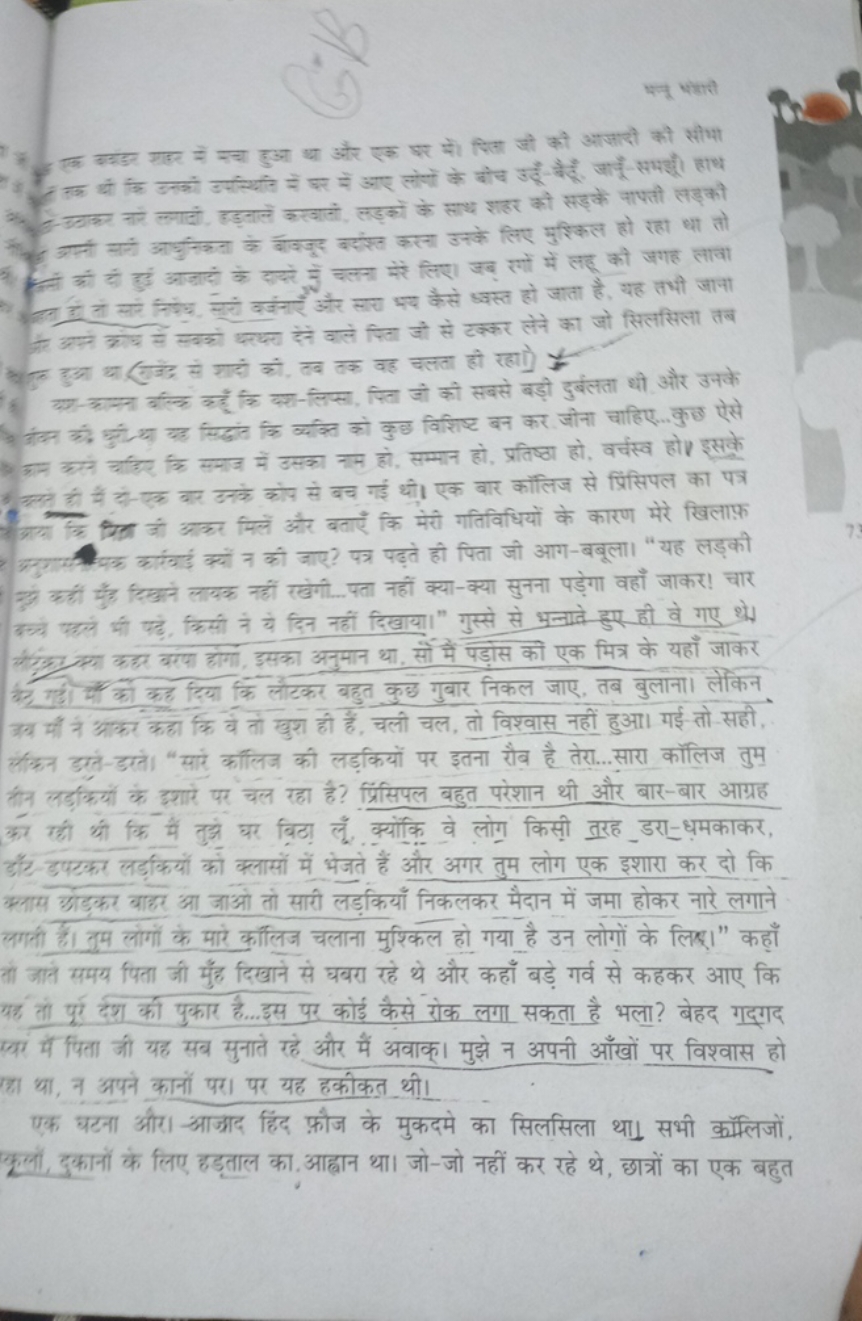 मन्नू भंडारी
एक बवंडर शहर में मचा हुआ था और एक घर में। पिता जी की आज़ादी की सीमा
तक थी कि उनकी उपस्थिति में घर में आए लोगों के बीच उठूँ-बैठूँ, जानूँ-समझूँ। हाथ
उठाकर नारे लगाती, हड़तालें करवाती, लड़कों के साथ शहर की सड़कें नापती लड़की
अपनी सारी आधुनिकता के बावजूद बर्दाश्त करना उनके लिए मुश्किल हो रहा था तो
की दी हुई आज़ादी के दायरे में चलना मेरे लिए। जब रगों में लहू की जगह लावा
हो तो सारे निषेध, सारी वर्जनाएँ और सारा भय कैसे ध्वस्त हो जाता है, यह तभी जाना
और अपने क्रोध से सबको थरथरा देने वाले पिता जी से टक्कर लेने का जो सिलसिला तब
शुरू हुआ था (राजेंद्र से शादी की, तब तक वह चलता ही रहा।)
यश-कामना बल्कि कहूँ कि यश-लिप्सा, पिता जी की सबसे बड़ी दुर्बलता थी और उनके
जीवन की धुरी था यह सिद्धांत कि व्यक्ति को कुछ विशिष्ट बन कर जीना चाहिए...कुछ ऐसे
काम करने चाहिए कि समाज में उसका नाम हो, सम्मान हो, प्रतिष्ठा हो, वर्चस्व हो। इसके
चलते ही मैं दो-एक बार उनके कोप से बच गई थी। एक बार कॉलिज से प्रिंसिपल का पत्र
आया कि पिता जी आकर मिलें और बताएँ कि मेरी गतिविधियों के कारण मेरे खिलाफ़
कार्रवाई क्यों न की जाए? पत्र पढ़ते ही पिता जी आग-बबूला। "यह लड़की
मुझे कहीं मुँह दिखाने लायक नहीं रखेगी...पता नहीं क्या-क्या सुनना पड़ेगा वहाँ जाकर! चार
बच्चे पहले भी पढ़े, किसी ने ये दिन नहीं दिखाया।" गुस्से से भन्नाते हुए ही वे गए थे।
लौटकर क्या कहर बरपा होगा, इसका अनुमान था, सो मैं पड़ोस की एक मित्र के यहाँ जाकर
बैठ गई। माँ को कह दिया कि लौटकर बहुत कुछ गुबार निकल जाए, तब बुलाना। लेकिन
जब माँ ने आकर कहा कि वे तो खुश ही हैं, चली चल, तो विश्वास नहीं हुआ। गई तो सही,
लेकिन डरते-डरते। "सारे कॉलिज की लड़कियों पर इतना रौब है तेरा...सारा कॉलिज तुम
तीन लड़कियों के इशारे पर चल रहा है? प्रिंसिपल बहुत परेशान थी और बार-बार आग्रह
कर रही थी कि मैं तुझे घर बिठा लूँ, क्योंकि वे लोग किसी तरह डरा-धमकाकर,
डाँट-डपटकर लड़कियों को क्लासों में भेजते हैं और अगर तुम लोग एक इशारा कर दो कि
क्लास छोड़कर बाहर आ जाओ तो सारी लड़कियाँ निकलकर मैदान में जमा होकर नारे लगाने
लगती हैं। तुम लोगों के मारे कॉलिज चलाना मुश्किल हो गया है उन लोगों के लिए।" कहाँ
तो जाते समय पिता जी मुँह दिखाने से घबरा रहे थे और कहाँ बड़े गर्व से कहकर आए कि
यह तो पूरे देश की पुकार है...इस पर कोई कैसे रोक लगा सकता है भला? बेहद गद्गद
स्वर में पिता जी यह सब सुनाते रहे और मैं अवाक्। मुझे न अपनी आँखों पर विश्वास हो
रहा था, न अपने कानों पर। पर यह हकीकत थी।
एक घटना और। आज़ाद हिंद फ़ौज के मुकदमे का सिलसिला था। सभी कॉलिजों,
स्कूलों, दुकानों के लिए हड़ताल का आह्वान था। जो-जो नहीं कर रहे थे, छात्रों का एक बहुत